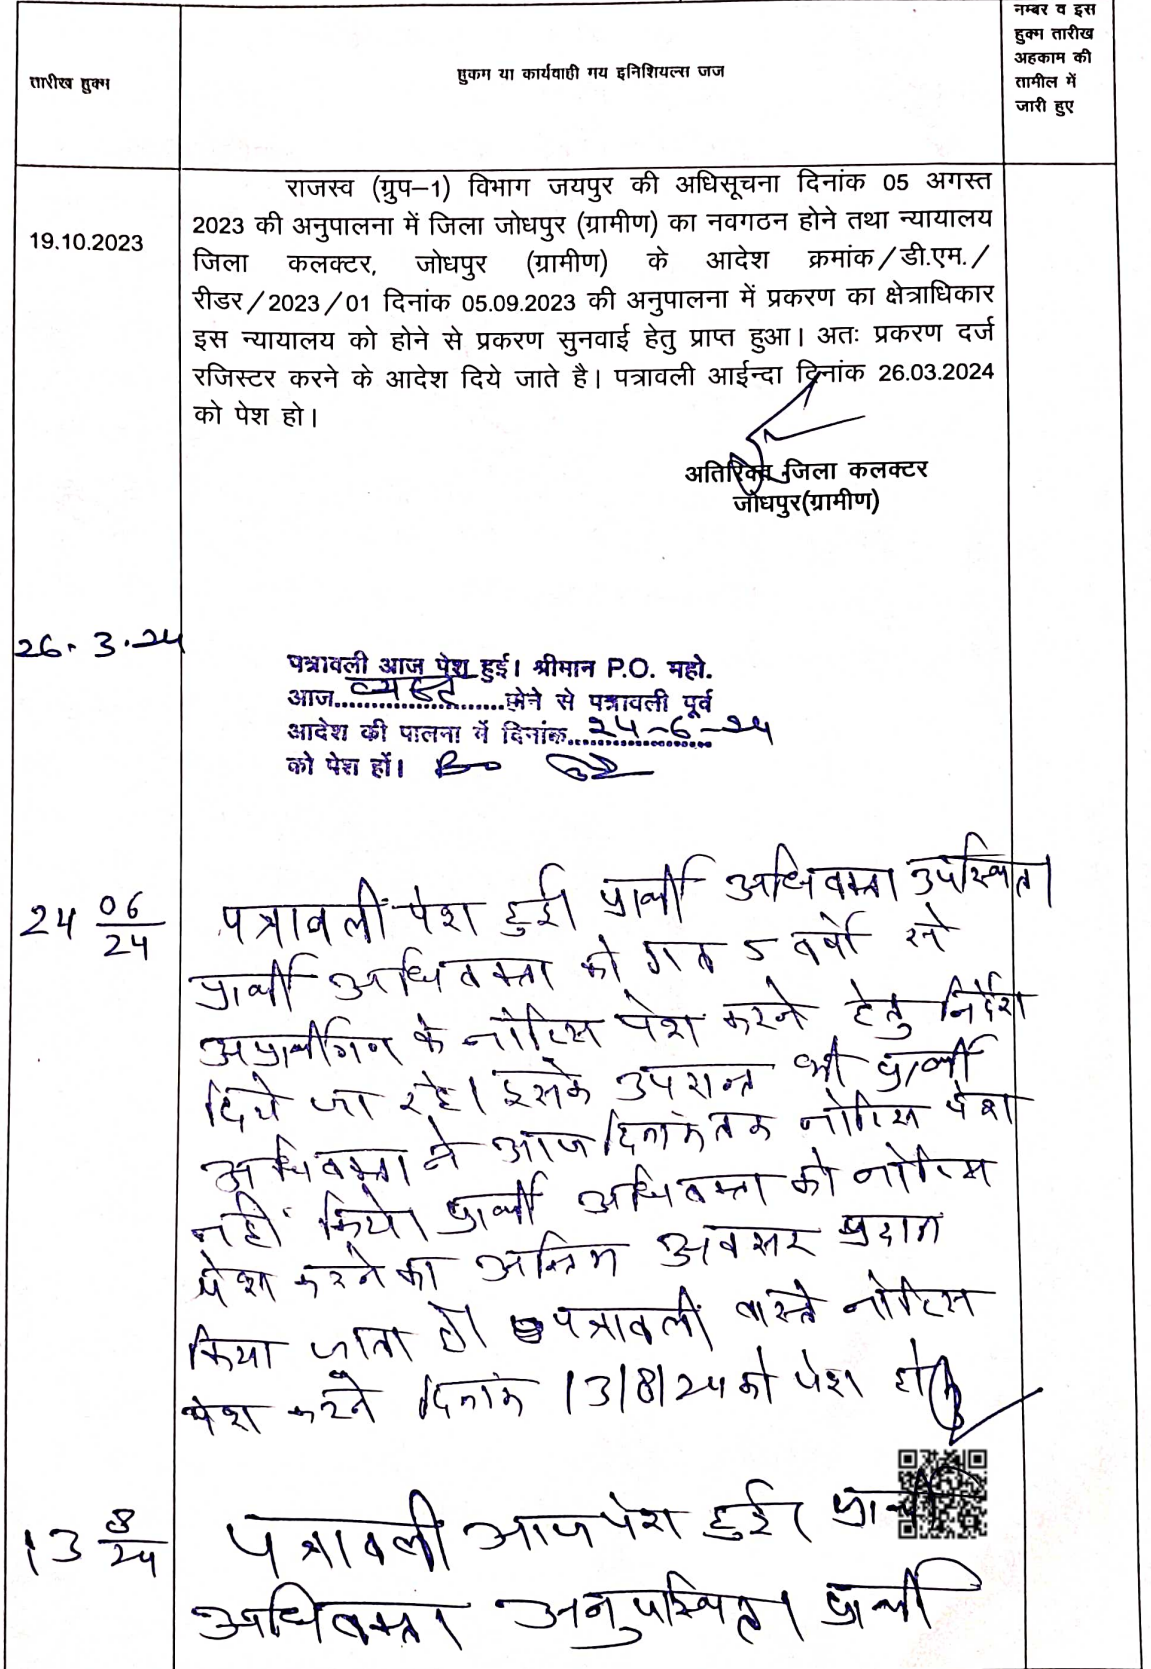 नम्बर व इस
हुक्म तारीख
अहकाम की
तामील में
जारी हुए
तारीख हुक्म
हुकम या कार्यवाही गय इनिशियल्स जज
19.10.2023
राजस्व (ग्रुप–1) विभाग जयपुर की अधिसूचना दिनांक 05 अगस्त
2023 की अनुपालना में जिला जोधपुर (ग्रामीण) का नवगठन होने तथा न्यायालय
जिला कलक्टर, जोधपुर (ग्रामीण) के आदेश क्रमांक/डी.एम./
रीडर/2023/01 दिनांक 05.09.2023 की अनुपालना में प्रकरण का क्षेत्राधिकार
इस न्यायालय को होने से प्रकरण सुनवाई हेतु प्राप्त हुआ। अतः प्रकरण दर्ज
रजिस्टर करने के आदेश दिये जाते है। पत्रावली आईन्दा दिनांक 26.03.2024
को पेश हो।
अतिरिक्त जिला कलक्टर
जोधपुर(ग्रामीण)
26.3.24
पत्रावली आज पेश हुई। श्रीमान P.O. महो.
आज व्यस्त होने से पत्रावली पूर्व
आदेश की पालना में दिनांक 24-6-24
को पेश हों।
24 06/24
पत्रावली पेश हुई। प्रार्थी अधिवक्ता उपस्थित।
प्रार्थी अधिवक्ता को गत 5 वर्षो से
अप्रार्थीगण के नोटिस पेश करने हेतु निर्देश
दिये जा रहे। इसके उपरान्त भी प्रार्थी
अधिवक्ता ने आज दिनांक तक नोटिस पेश
नहीं किये। प्रार्थी अधिवक्ता को नोटिस
पेश करने का अन्तिम अवसर प्रदान
किया जाता है। पत्रावली वास्ते नोटिस
पेश करने दिनांक 13/8/24 को पेश हो।
13 8/24
पत्रावली आज पेश हुई। प्रार्थी
अधिवक्ता अनुपस्थित। प्रार्थी